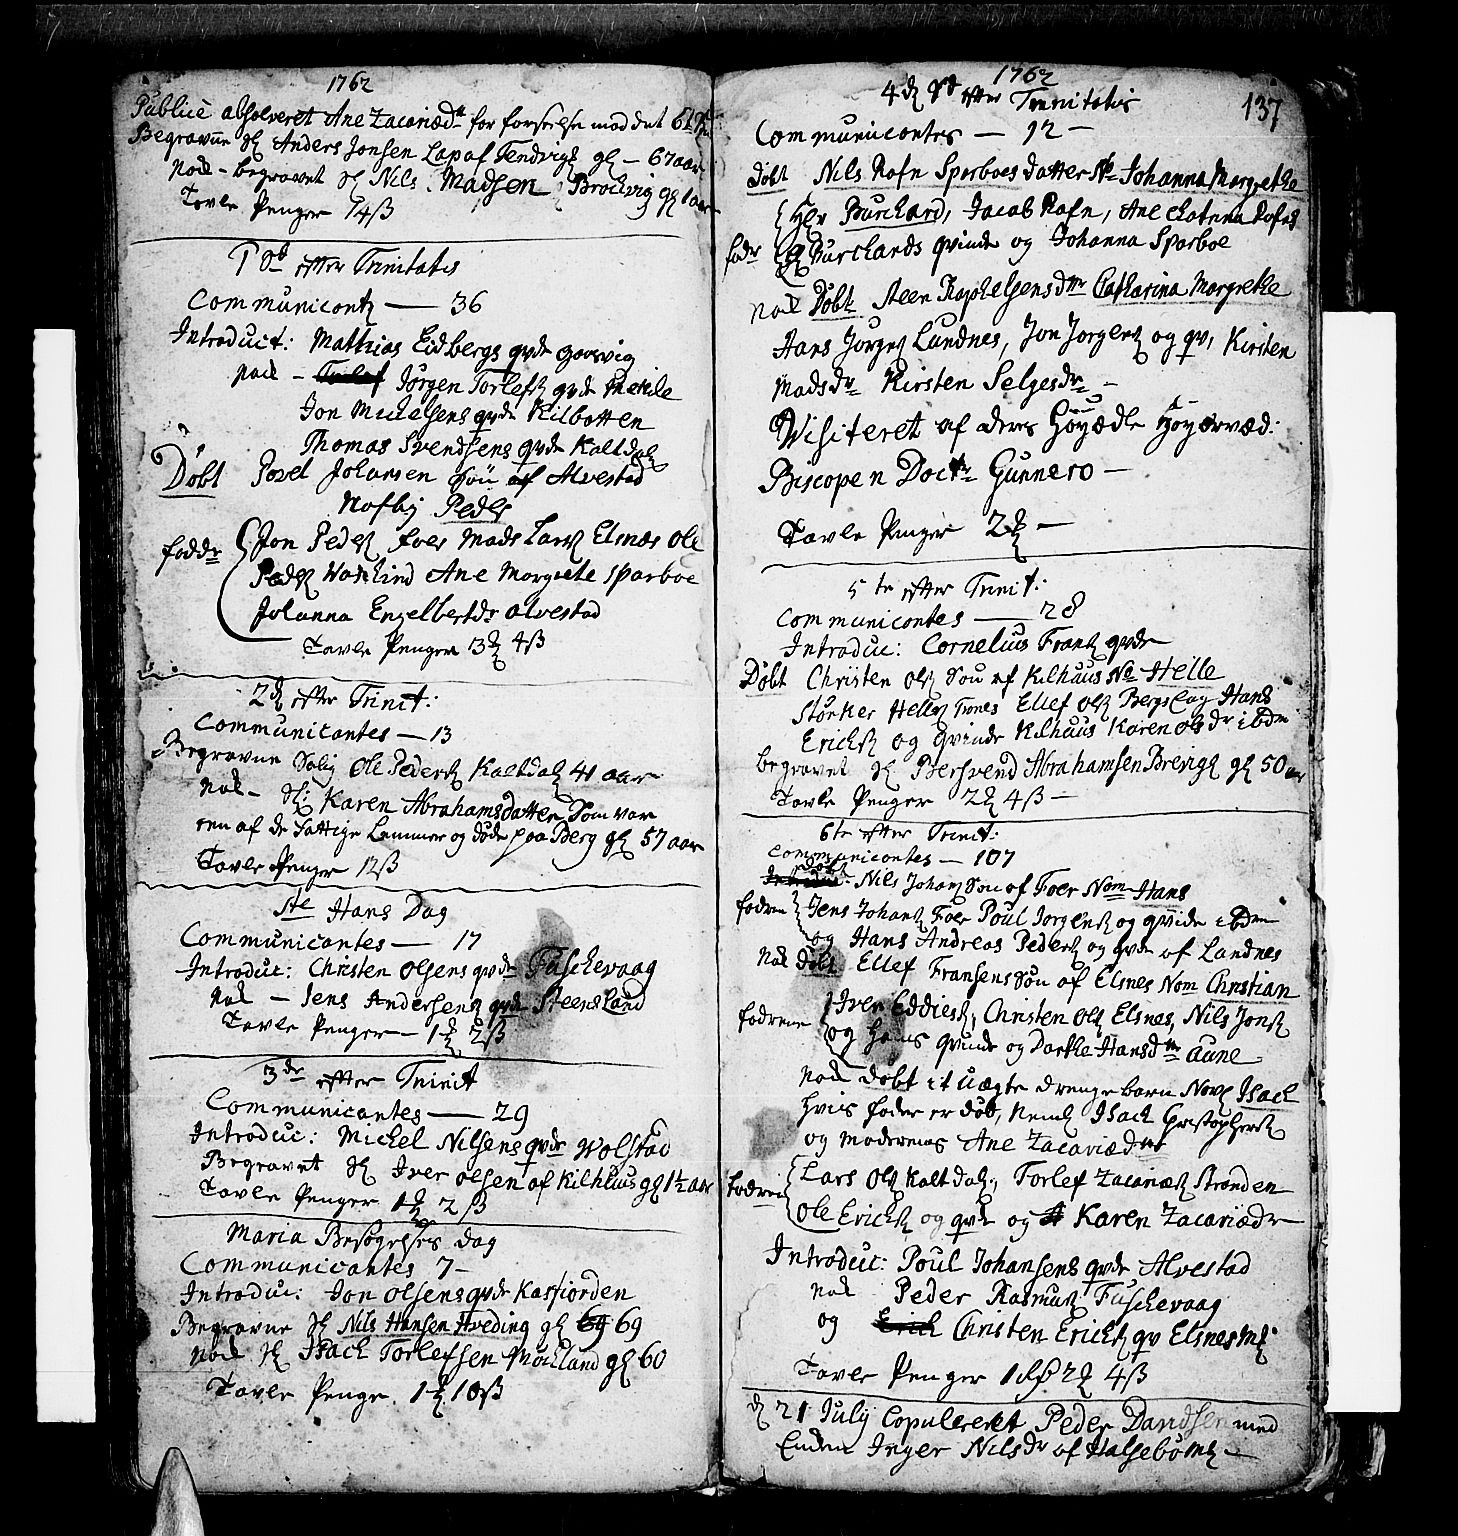 1762
Publicè absolveret Ane Zacariæd. for forseelse mod det 6te
Begravne Sl Anders Jonsen Lap af Tendvig gl – 67 aar
Nok – begravet Sl Nils Madsen Brochvig gl 1 aar
Tavle Penger 14ß
1 Sd effter Trinitatis
Communicant — 36
Introduct: Mathias Eidbergs qvde Gaasvig
Nok – Jørgen Torlefs qvde
Jon Michelsens qvde Kilbotten
Thomas Svendsens qvde Kaltdal
Døbt Povel Johansen Søn af Alvestad
Nafn Peder
fadde Jon Peders foer Mads Lars Elsnæs Ole
Peders Ane Margrete Sparboe
Johanna Engelbertdr Alvestad
Tavle Penger 3 4ß
2d effter Trinit:
Communicantes — 13
Begravne Salig Ole Peders Kaltdal 41 aar
Nok – Sl: Karen Abrahamsdatter Som var
een af de fattige Lemmer og døde paa Berg gl 57 aar
Tavle Penger 12ß
Ste Hans Dag
Communicantes — 17
Introduc: Christen Olsens qvde Fuschevaag
Nok – Jens Andersens qvde Steensland
Tavle Penger – 1 2ß
3de effter Trinit
Communicantes — 29
Introduc: Michel Nilsens qvde Wolstad
Begravet Sl Iver Olsen af Kilhuus gl 1½ aar
Tavle Penger 1 2ß
Maria Besøgelses Dag
Communicantes 7 –
Introduc: Jon Olsens qvde Kasfiorden
Begravne Sl Nils Hansen Hveding gl 69 69
Nok Sl Isach Torlefsen Møckland gl 60
Tavle Penge 1 10ß
1762
137
4d Sd effter Trinitatis
Communicantes — 12 –
Døbt Nils Rafn Sparboes datter Nn Johanna Margrethe
fadr Hr Burchard, Jacob Rafn, Ane
Burchards qvinde og Johanna Sparboe
Nok Døbt Steen Raphelsens dtr Catharina Margrethe
Hans Jørgs Lundnes, Jon Jørgens og qv, Kirsten
Madsdr Kirsten Selgesdr –
Wisiteret af deres Høyædle Høyærvæd:
Biscopen Doctr Gunnero –
Tavle Penger 2 —
5te effter Trinit:
Communicantes — 28
Introduc: Cornelius Frants qvde
Døbt Christen Ols Søn af Kilhuus Nn Helle
Størker Helles Ellef Ols Bergslag Hans
Ericks og qvinde Kilhuus Karen Olsdr ibdm
begravet Sl Bersvend Abrahamsen Brevig gl 50 aar
Tavle Penger 2 4ß –
6te effter Trinit:
Communicantes — 107
døbt Nils Johans Søn af Foer Nom Hans
fadrene Jens Johans Foer Poul Jørgens og qvinde ibdm
og Hans Andreas Peders og qvde af Landnes
Nok Døbt Ellef Fransens Søn af Elsnes Nom Christian
fadrene Iver Eddies, Christen Ols Elsnes, Nils Jons
og Hans qvinde og Dorthe Hansdtr Aune
Nok døbt it uægte drengebarn Navl Isach
hviis fader er død, Neml Isach Christophers
og moderens Ane Zacariædtr
fadrene Lars Ols Kaltdal, Torlef Zacariæs Stranden
Ole Ericks og qvde og Karen Zacariædr
Introduc: Poul Johansens qvde Alvestad
Nok Peder Rasmus Fuschevaag
og Christen Ericks qv Elsnes
Tavle Penger 1 2 4ß
d 21 July Copuleret Peder Davidsen med
Enden Inger Nilsdr af Halsebø